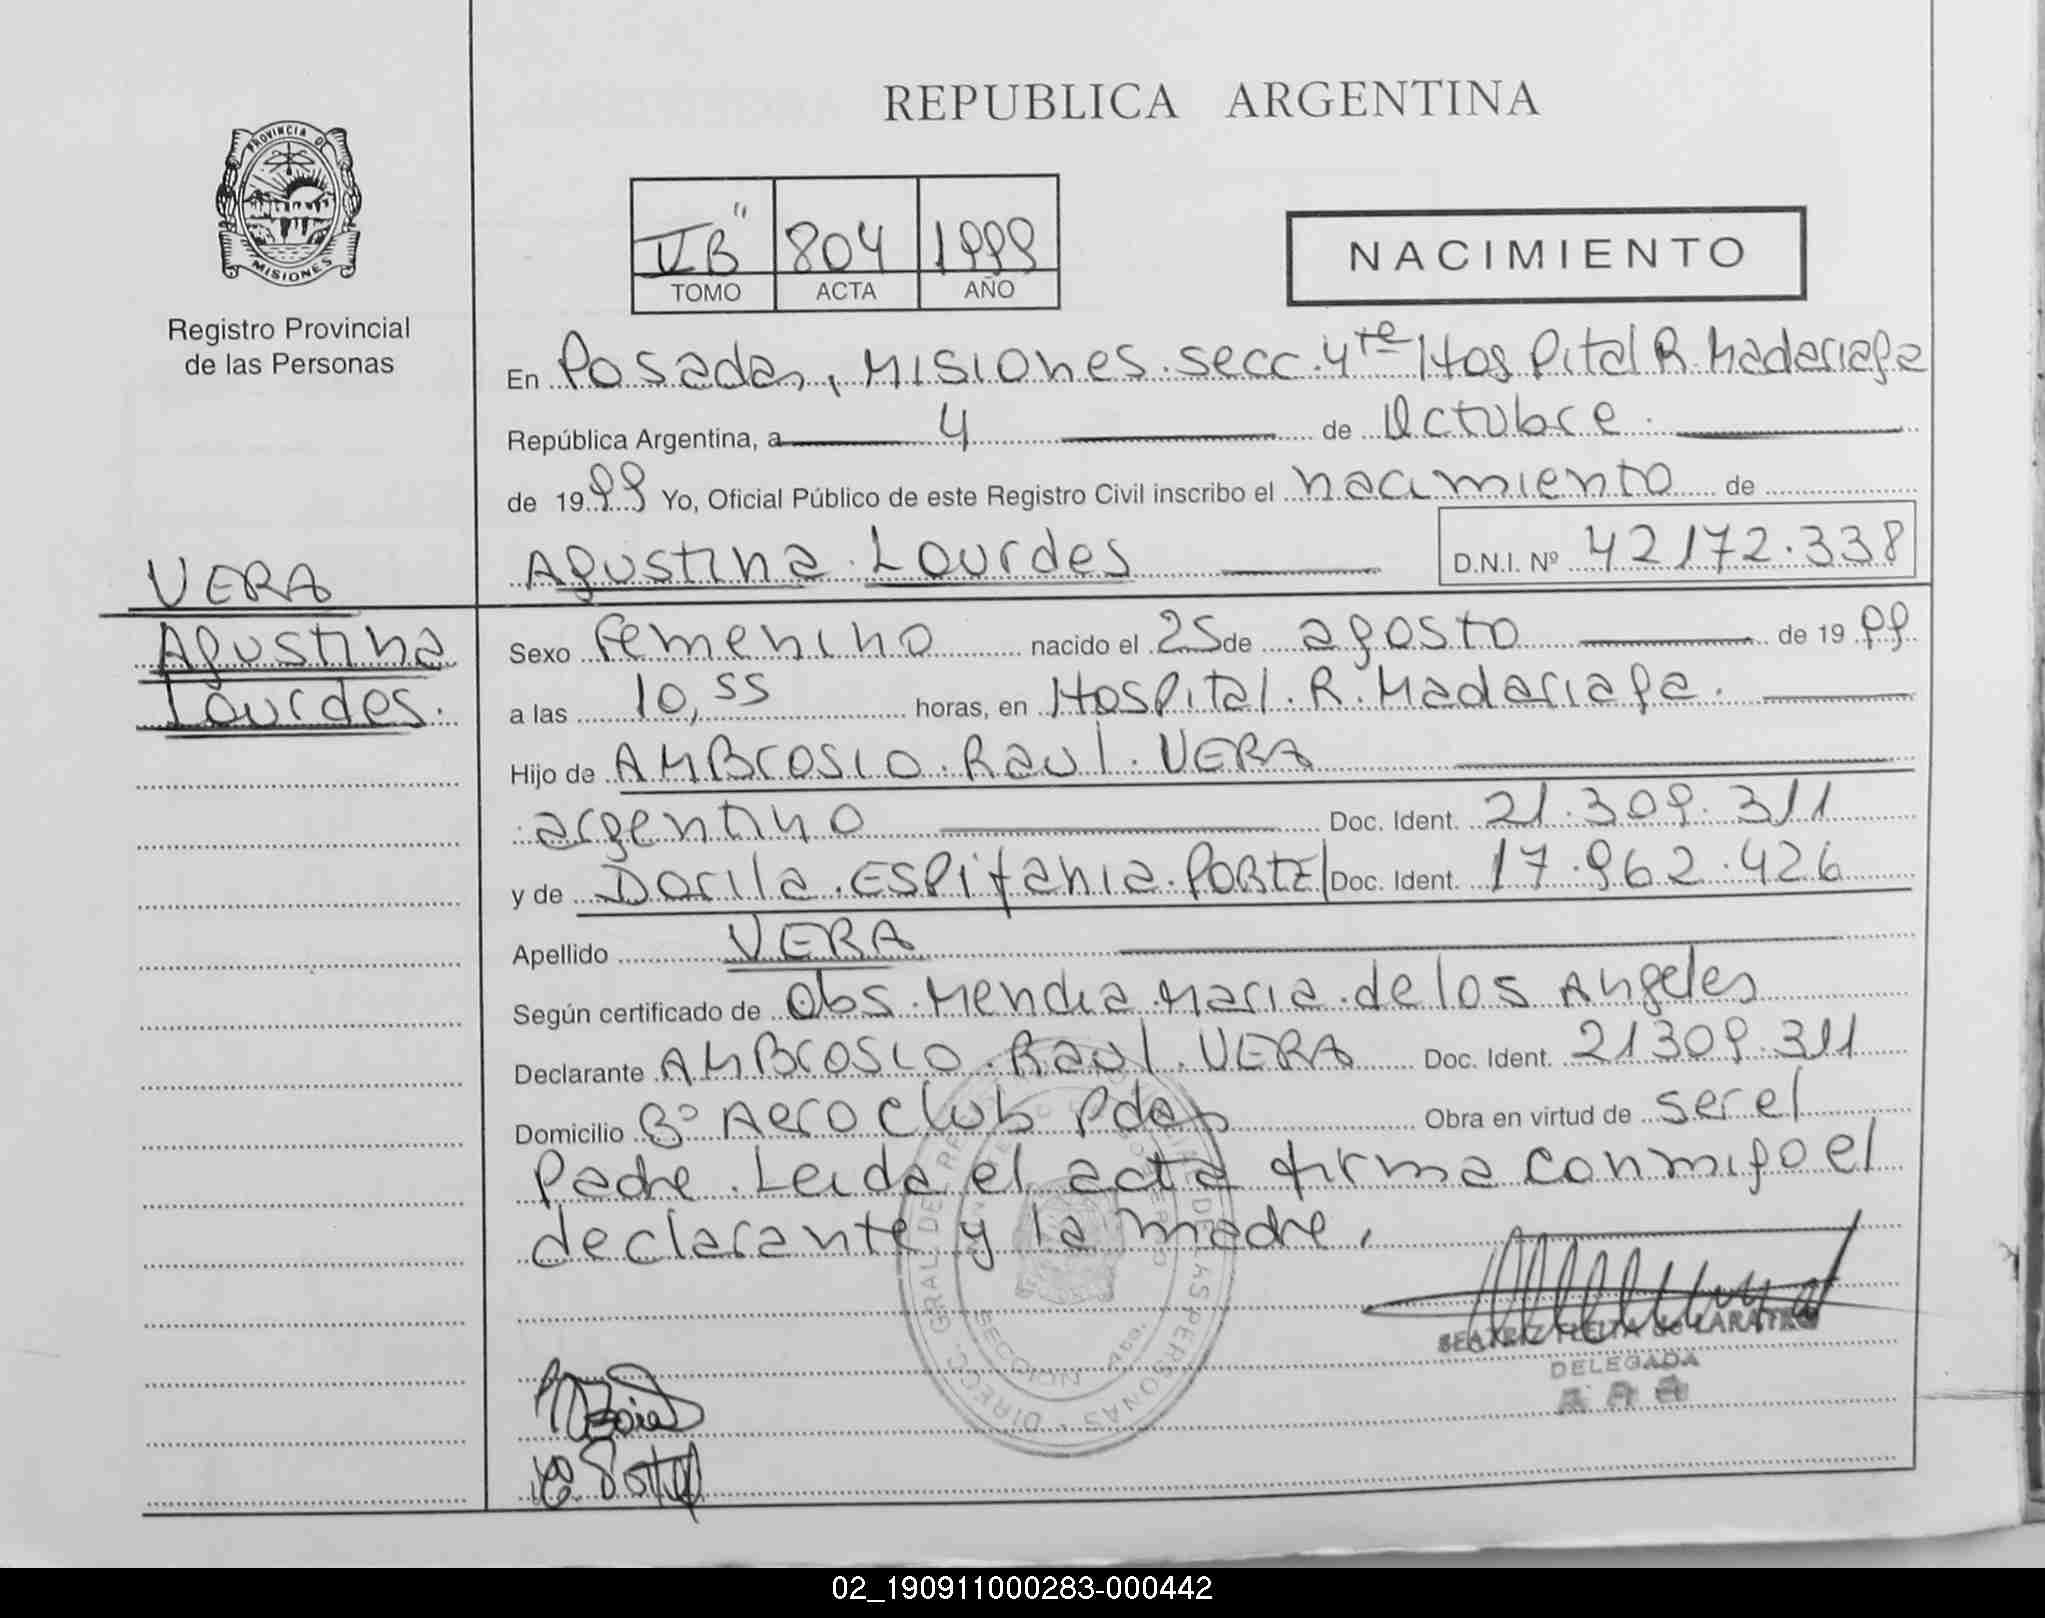 REPUBLICA ARGENTINA
PROVINCIA DE
MISIONES
Registro Provincial
de las Personas
II B" 804 1999
TOMO ACTA AÑO
NACIMIENTO
En Posadas, Misiones. secc. 4ta Hospital R. Madariaga
República Argentina, a 4 de Octubre.
de 1999 Yo, Oficial Público de este Registro Civil inscribo el nacimiento de
Agustina Lourdes D.N.I. Nº 42172.338
VERA
Agustina
Lourdes.
Sexo Femenino nacido el 25 de agosto de 1999
a las 10,55 horas, en Hospital. R. Madariaga.
Hijo de AMBrosio. Raul. VERA
argentino Doc. Ident. 21.309.311
y de Dorila. ESPifania. Doc. Ident. 17.962.426
Apellido VERA
Según certificado de Obs. Mendia Maria. de los Angeles
Declarante AMBrosio. Raul. VERA Doc. Ident. 21309.311
Domicilio Bº Aero Club Pdas Obra en virtud de ser el
Padre. Leida el acta firma conmigo el
declarante y la madre.
DIRECC. GRAL. DE LAS PERSONAS
SECCION
BEATRIZ
DELEGADA
02_190911000283-000442